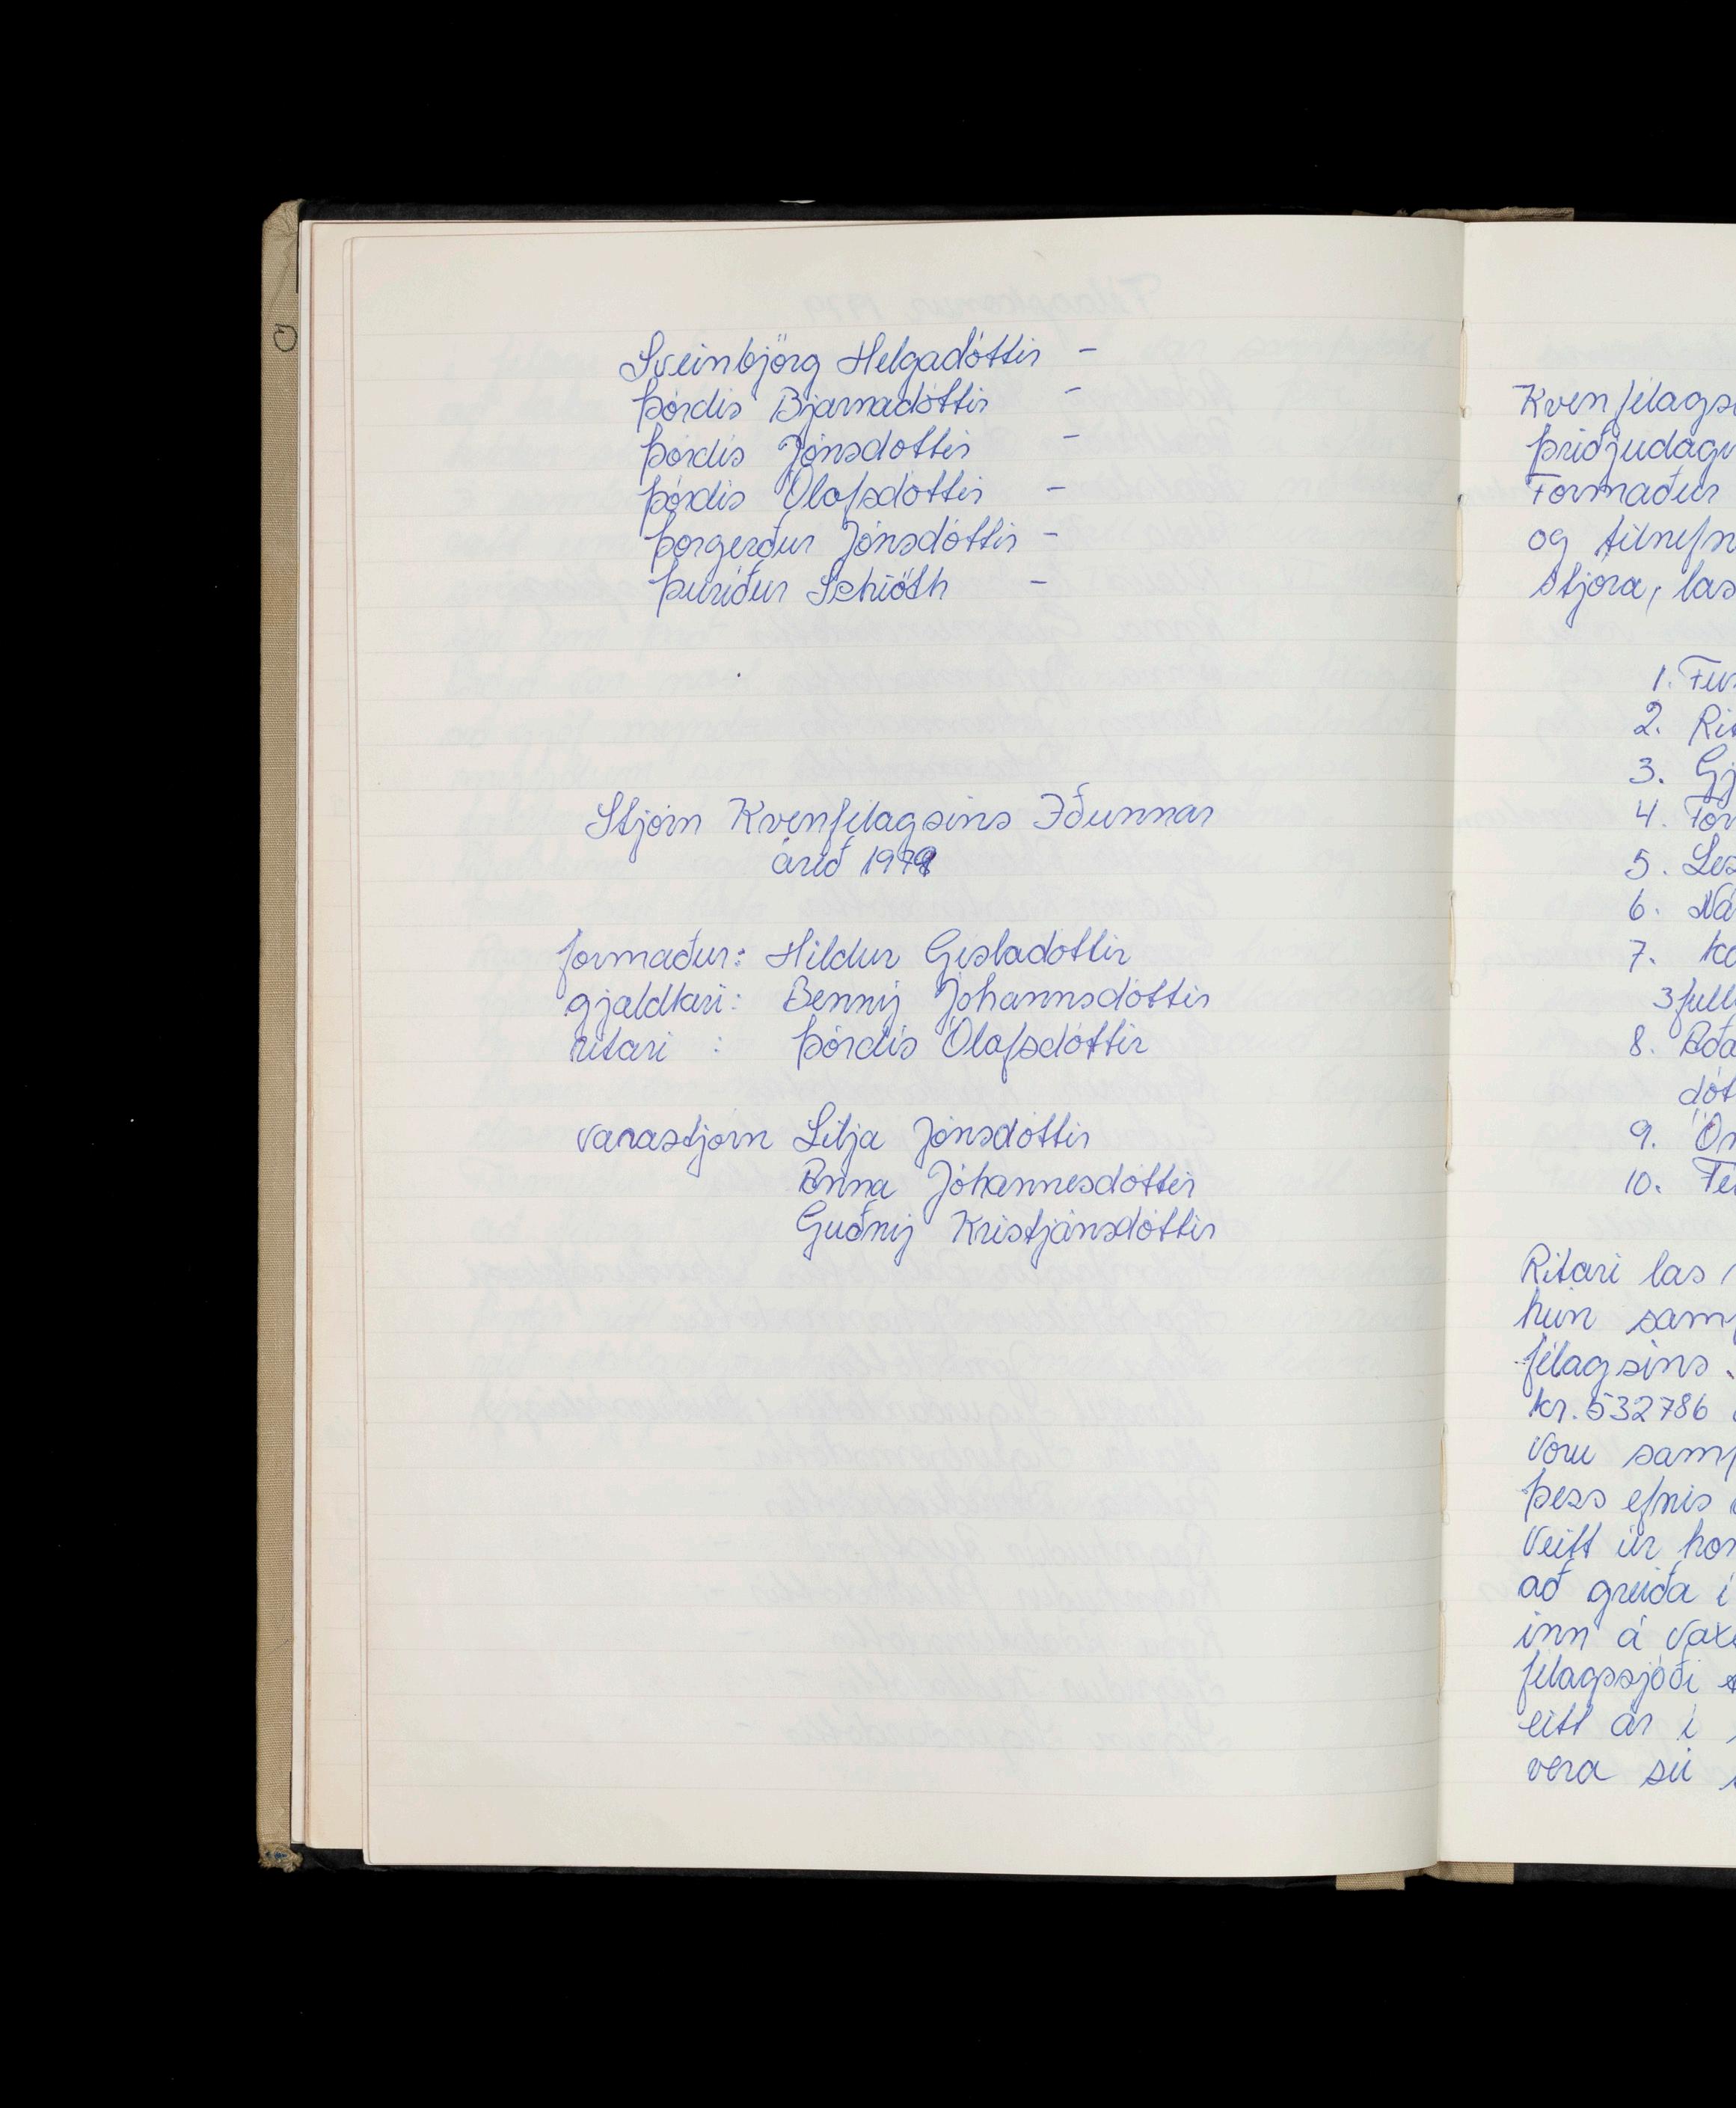 Sveinbjörg Helgadóttir -
Þórdís Bjarnadóttir -
Þórdís Jónsdóttir -
Þórdís Ólafsdóttir -
Þorgerður Jónsdóttir -
Þuríður Schiöth -
Stjórn Kvenfélagsins Iðunnar
árið 1979
formaður: Hildur Gísladóttir
gjaldkeri: Benný Jóhannsdóttir
ritari : Þórdís Ólafsdóttir
varastjórn Lilja Jónsdóttir
Anna Jóhannesdóttir
Guðný Kristjánsdóttir
Kvenfélags
þriðjudag
Formaður
og tilnefn
stjóra, las
1. Fu
2. Rit
3. Gj
4. For
5. Les
6. Ná
7. Ko
3 full
8. Aða
dót
9. Ön
10. Fe
Ritari las
hún sam
félagsins.
kr. 532786
voru sam
þess efnis
veitt úr
að greiða í
inn á vax
félagssjóði
eitt ár í
vera sú